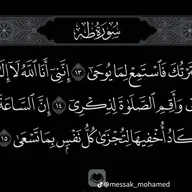 سُورَةُ طه
ٱخۡتَرۡتُكَ فَٱسۡتَمِعۡ لِمَا يُوحَىٰٓ ١٣ إِنَّنِيٓ أَنَا ٱللَّهُ لَآ إِلَٰهَ
وَأَقِمِ ٱلصَّلَوٰةَ لِذِكۡرِيٓ ١٤ إِنَّ ٱلسَّاعَةَ
أَكَادُ أُخۡفِيهَا لِتُجۡزَىٰ كُلُّ نَفۡسِۭ بِمَا تَسۡعَىٰ ١٥
@messak_mohamed